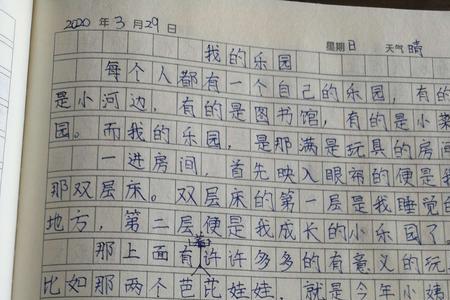 2020 年 3 月 29 日 星期日 天气 晴
我的乐园
每个人都有一个自己的乐园，有的
是小河边，有的是图书馆，有的是小菜
园。而我的乐园，是那满是玩具的房间
一进房间，首先映入眼帘的便是我
那双层床。双层床的第一层是我睡觉的
地方，第二层便是我成长的小乐园了
那上面有许许多多的有意义的玩
比如那两个芭比娃娃，就是今年小姨